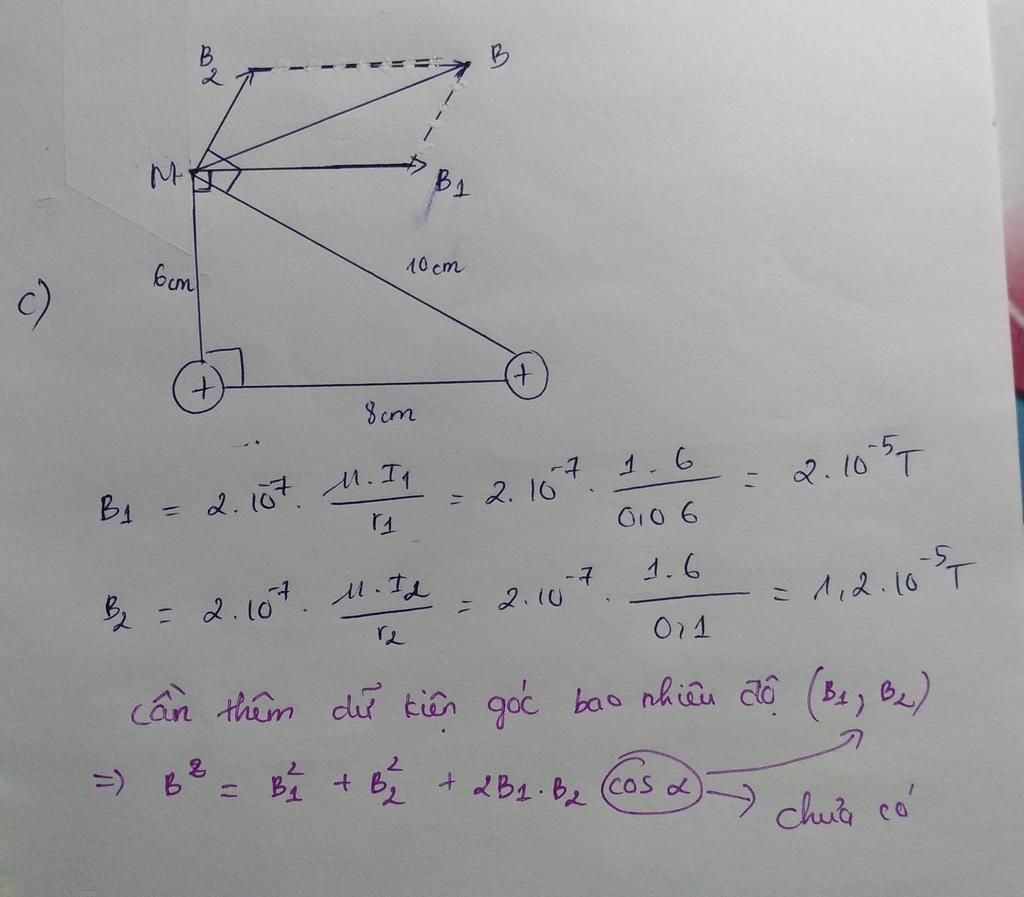 B2
B
M
B1
6cm
10cm
c)
+
+
8cm
B1 = 2.10^-7 . μ.I1/r1 = 2.10^-7 . 1.6/0,06 = 2.10^-5 T
B2 = 2.10^-7 . μ.I2/r2 = 2.10^-7 . 1.6/0,1 = 1,2.10^-5 T
cần thêm dữ kiện góc bao nhiêu độ (B1, B2)
=> B^2 = B1^2 + B2^2 + 2B1.B2 cos α
chưa có